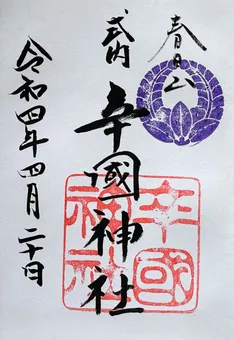 春日山
式内
辛國神社
辛國神社
令和四年四月二十日